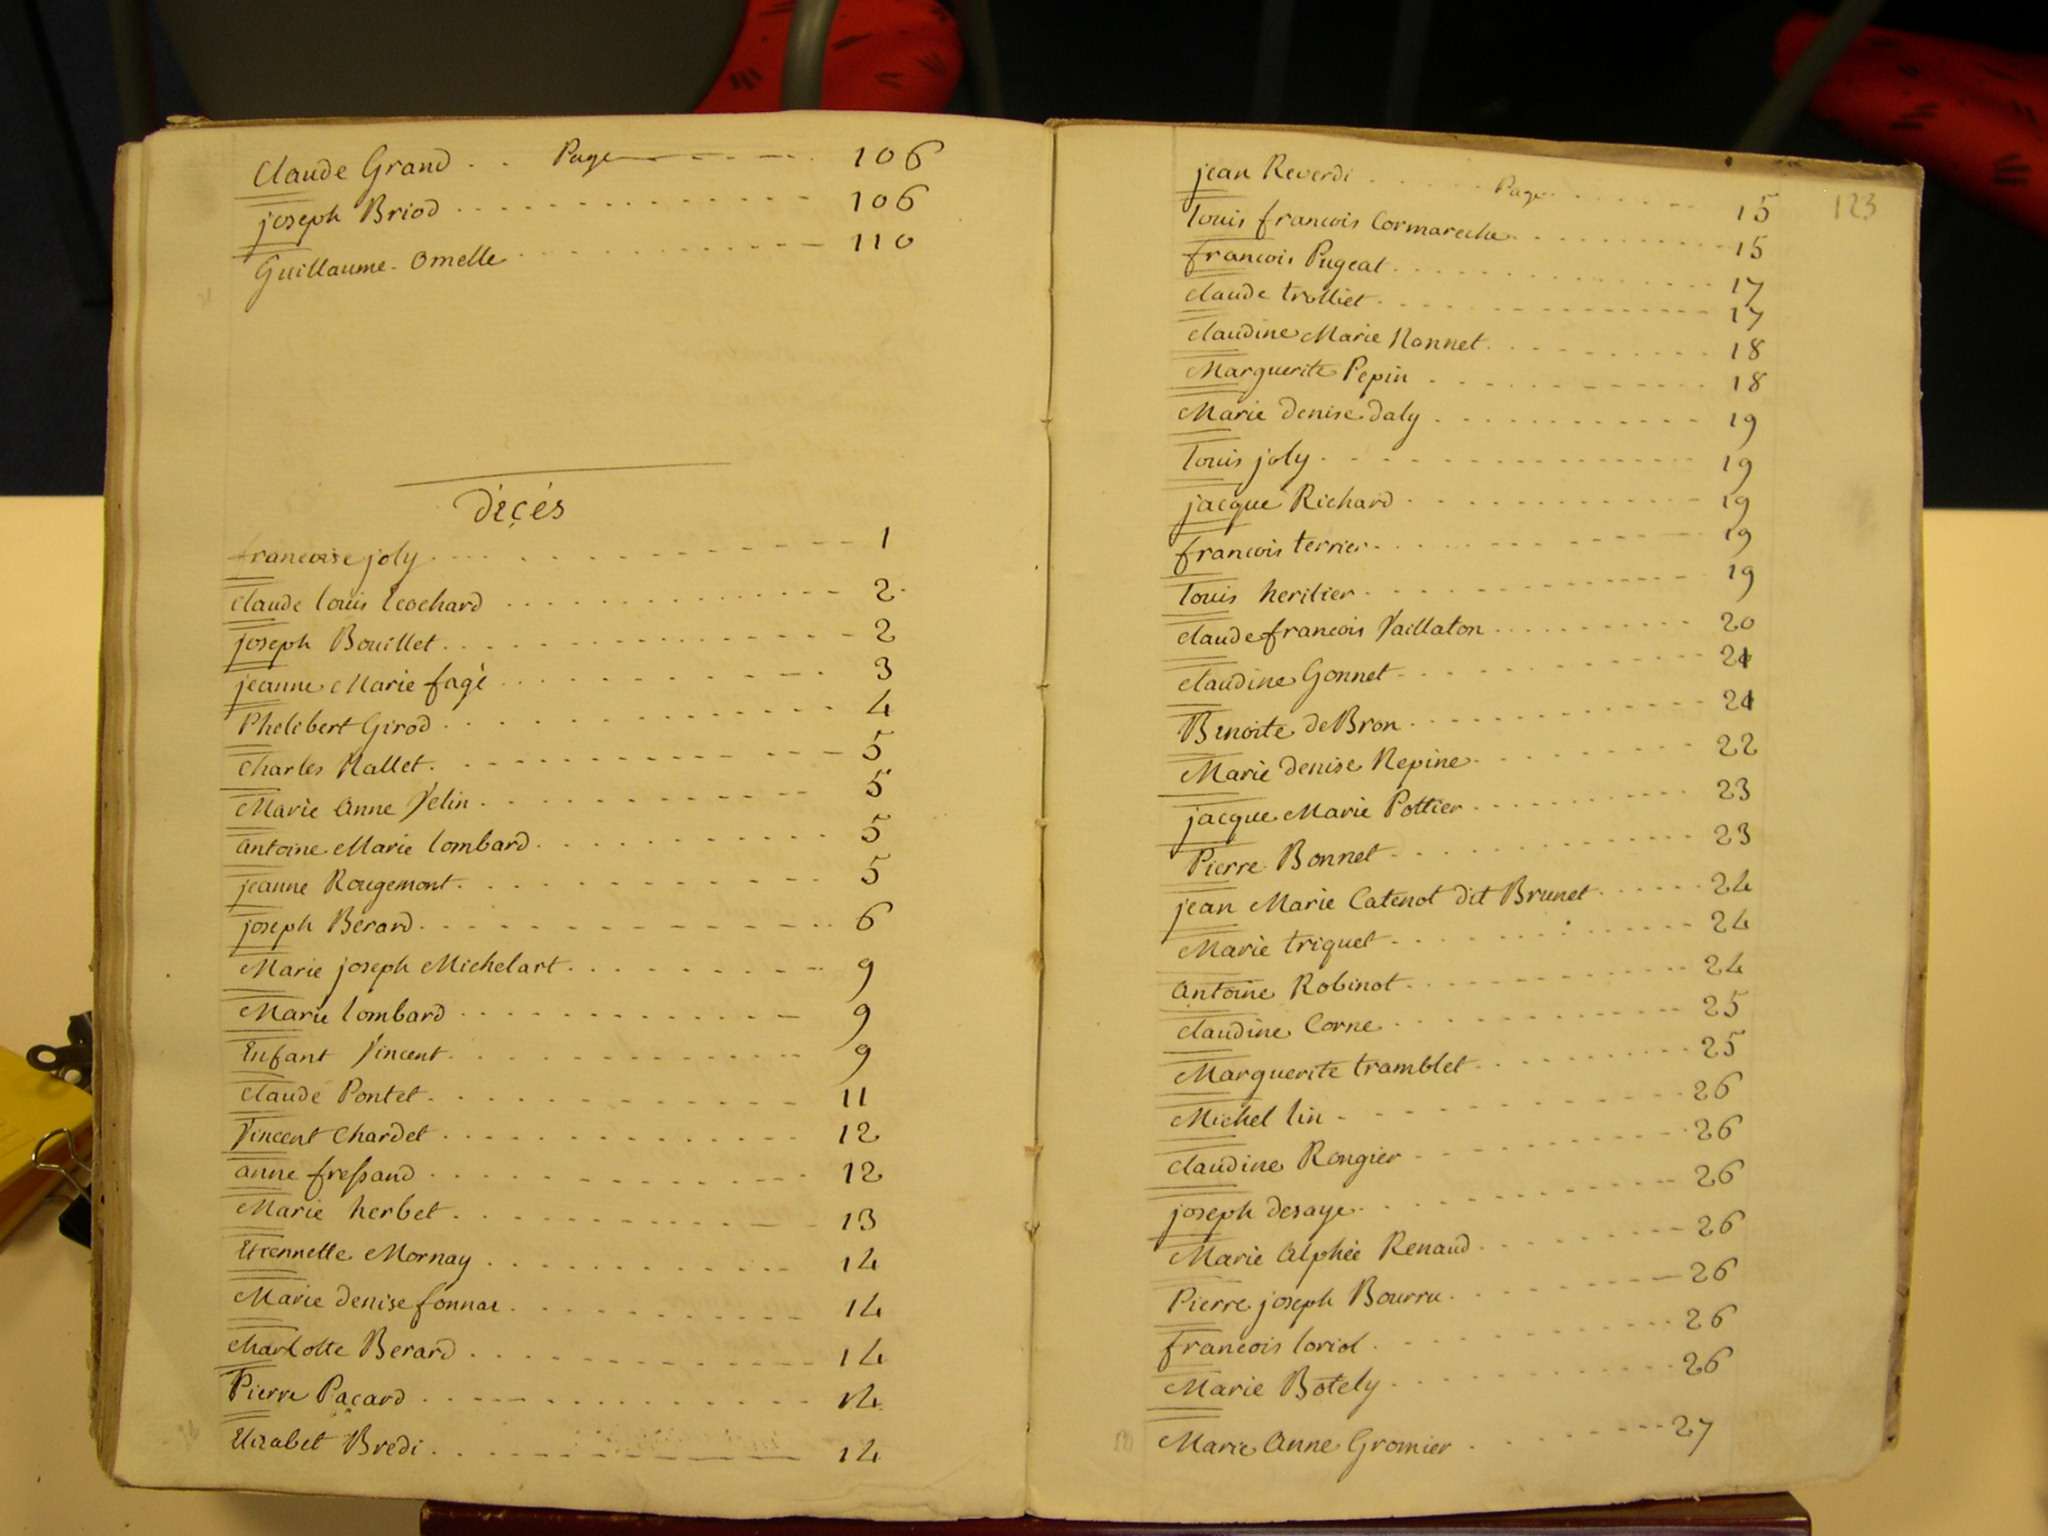 Claude Grand . . Page 106
joseph Briod 106
Guillaume Omelle 110
Déçés
francoise joly 1
Claude louis Ecochard 2
joseph Bouillet 2
jeanne Marie fagé 3
Phelibert Girod 4
Charles Mallet 5
Marie anne Velin 5
antoine Marie lombard 5
jeanne Rougemont 5
joseph Berard 6
Marie joseph Michelart 9
Marie lombard 9
Enfant Vincent 9
Claude Pontet 11
Vincent Chardet 12
anne fressand 12
Marie herbet 13
Etiennette Mornay 14
Marie denise fonnar 14
Charlotte Berard 14
Pierre Paçard 14
Elizabet Bredi 14
jean Reverdi Page 15
123
louis francois Cormareche 15
francois Pugeat 17
Claude trolliet 17
Claudine Marie Nonnet 18
Marguerite Pepin 18
Marie denise daly 19
louis joly 19
jacque Richard 19
francois terrier 19
louis heritier 19
Claude francois Vaillaton 20
Claudine Gonnet 21
Benoite deBron 21
Marie denise Repine 22
jacque Marie Pottier 23
Pierre Bonnet 23
jean Marie Catenot dit Brunet 24
Marie triquet 24
Antoine Robinot 24
Claudine Corne 25
Marguerite tramblet 25
Michel lin 26
Claudine Rongier 26
joseph desaye 26
Marie Alphée Renaud 26
Pierre joseph Bourru 26
francois loriol 26
Marie Botely 26
Marie Anne Gromier 27